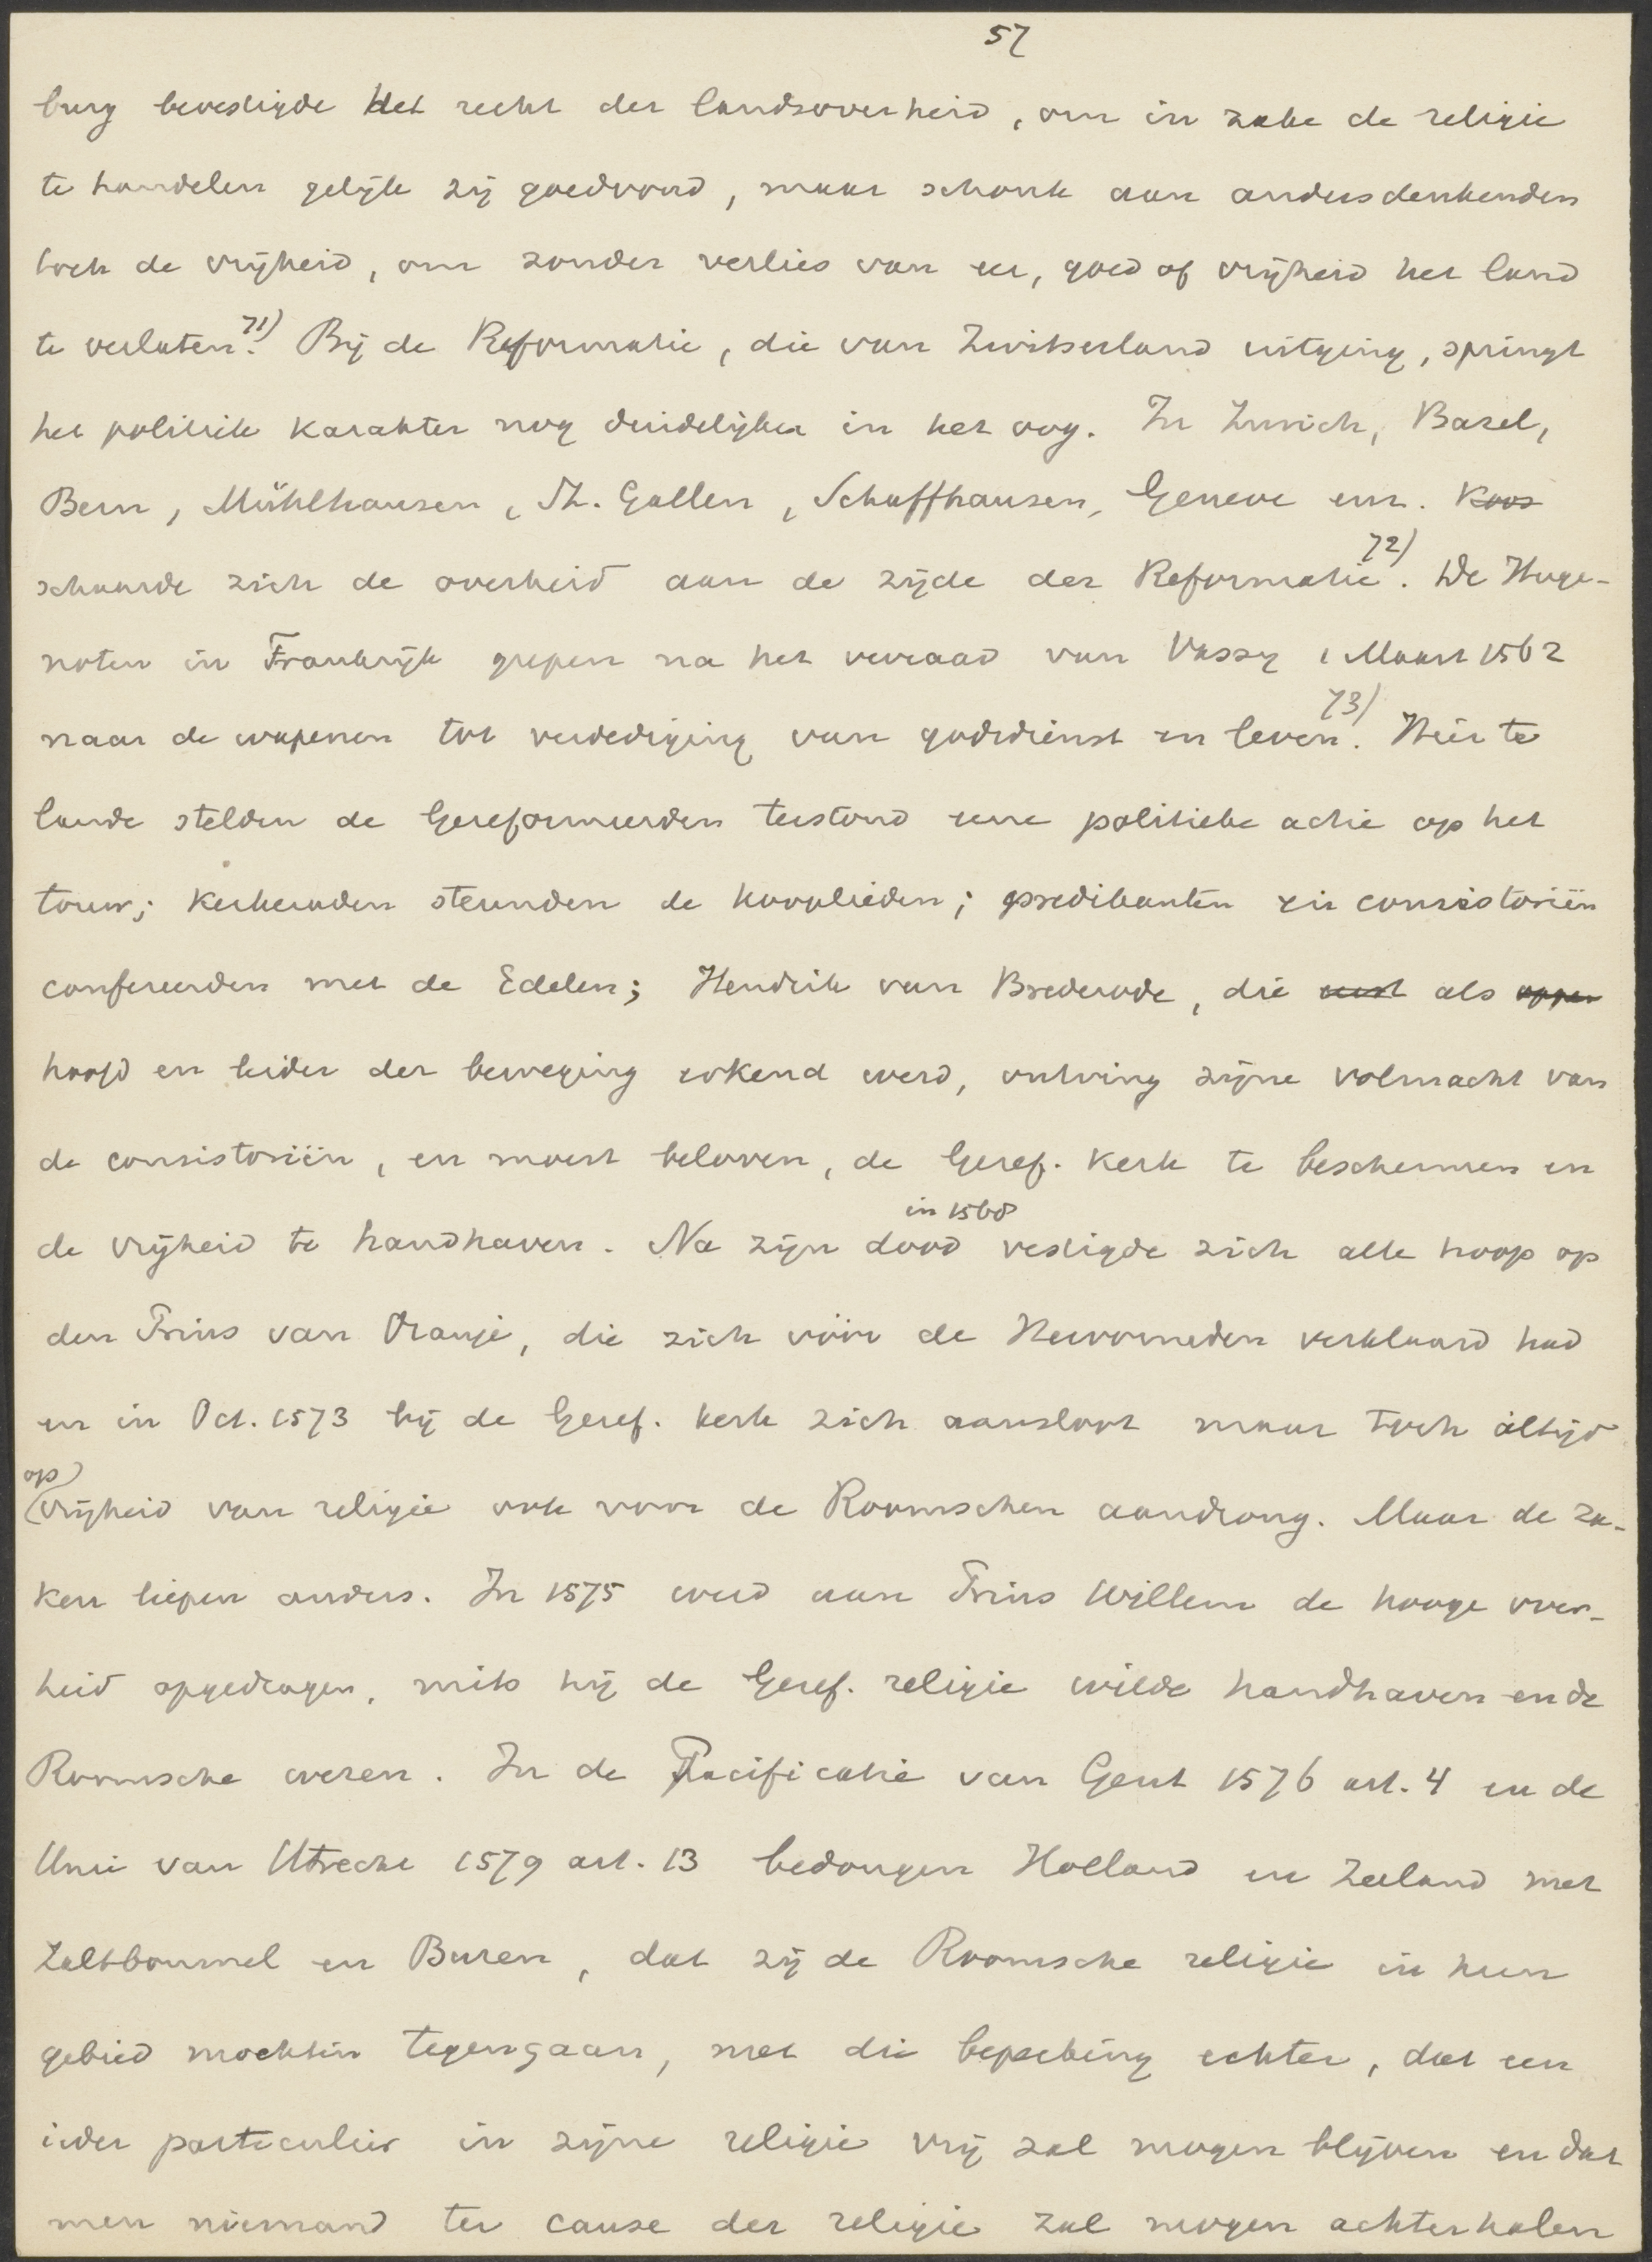 57
burg bevestigde het recht der landsoverheid, om in zake de religie
te handelen gelijk zij goedvond, maar schonk aan andersdenkenden
toch de vrijheid, om zonder verlies van eer, goed of vrijheid het land
te verlaten.71) Bij de Reformatie, die van Zwitserland uitging, springt
het politiek karakter nog duidelijker in het oog. In Zurich, Basel,
Bern, Mühlhausen, St. Gallen, Schaffhausen, Geneve enz. koos
schaarde zich de overheid aan de zijde der Reformatie72). De Huge-
noten in Frankrijk grepen na het verraad van Vassy 1 Maart 1562
naar de wapenen tot verdediging van godsdienst en leven73). Hier te
lande stelden de Gereformeerden terstond eene politieke actie op het
touw; kerkeraden steunden de kooplieden; predikanten en consistoriën
confereerden met de Edelen; Hendrik van Brederode, die eerst als opper
hoofd en leider der beweging erkend werd, ontving zijne volmacht van
de consistoriën, en moest beloven, de Geref. kerk te beschermen en
de vrijheid te handhaven. Na zijn dood in 1568 vestigde zich alle hoop op
den Prins van Oranje, die zich vóór de Hervormden verklaard had
en in Oct. 1573 bij de Geref. kerk zich aansloot maar toch altijd
op vrijheid van religie ook voor de Roomschen aandrong. Maar de za-
ken liepen anders. In 1575 werd aan Prins Willem de hooge over-
heid opgedragen, mits hij de Geref. religie wilde handhaven en de
Roomsche weren. In de Pacificatie van Gent 1576 art. 4 en de
Unie van Utrecht 1579 art. 13 bedongen Holland en Zeeland met
Zaltbommel en Buren, dat zij de Roomsche religie in hun
gebied mochten tegengaan, met die beperking echter, dat een
ieder particulier in zijne religie vrij zal mogen blijven en dat
men niemand ter cause der religie zal mogen achterhalen